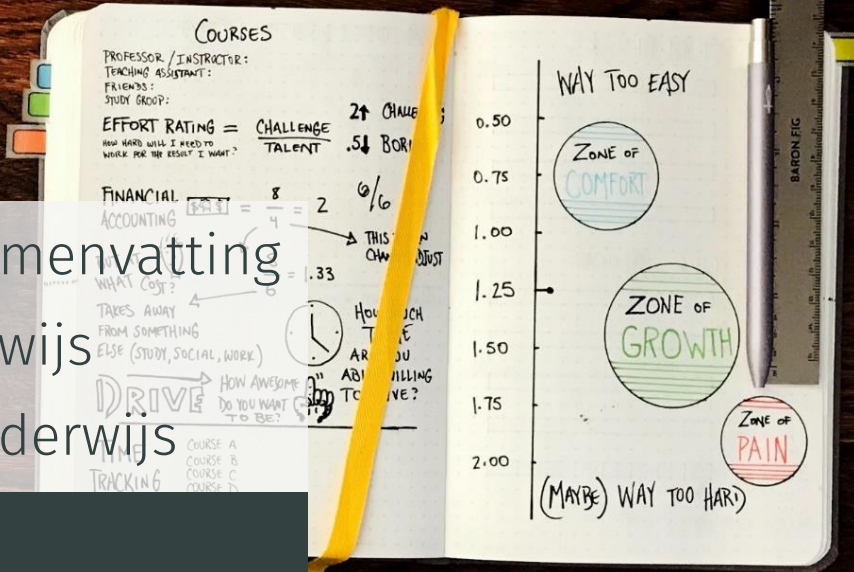 COURSES
PROFESSOR / INSTRUCTOR:
TEACHING ASSISTANT:
FRIENDS:
STUDY GROUP:
EFFORT RATING = CHALLENGE
TALENT
HOW HARD WILL I NEED TO
WORK FOR THE RESULT I WANT?
2↑
.5↓
FINANCIAL
ACCOUNTING
= 8
4
= 2
6/6
THIS
WHAT COST?
= 1.33
6
TAKES AWAY
FROM SOMETHING
ELSE (STUDY, SOCIAL, WORK)
DRIVE
HOW AWESOME
DO YOU WANT
TO BE?
TIME
TRACKING
COURSE A
COURSE B
COURSE C
COURSE D
menvatting
wijs
derwijs
WAY TOO EASY
0.50
0.75
1.00
1.25
1.50
1.75
2.00
ZONE OF
COMFORT
ZONE OF
GROWTH
ZONE OF
PAIN
(MAYBE) WAY TOO HARD
BARON FIG